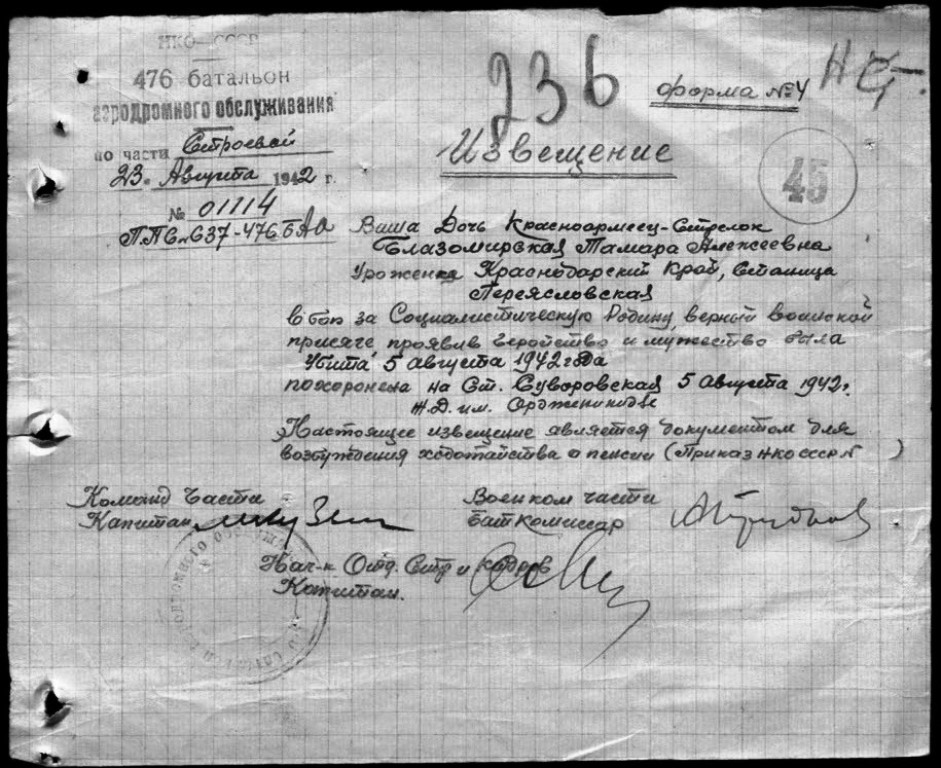 НКО–СССР
476 батальон
аэродромного обслуживания
по части Строевой
23. Августа 1942 г.
№ 01114
П.П.С. 637-476 БАО
236
форма №4
Извещение
45
Ваша Дочь Красноармеец-Стрелок
Благомирская Тамара Алексеевна
Уроженка Краснодарский Край, Станица
Переясловская
в бою за Социалистическую Родину, верный воинской
присяге проявив геройство и мужество была
Убита 5 августа 1942 года
похоронена на Ст. Суворовская 5 Августа 1942г.
Ж.Д. им. Орджоникидзе
Настоящее извещение является документом для
возбуждения ходотайства о пенсии (Приказ НКО СССР №    )
Команд Части
Капитан
Военком части
Бат Комиссар
Нач-к Отд. Стр и кадров
Капитан.